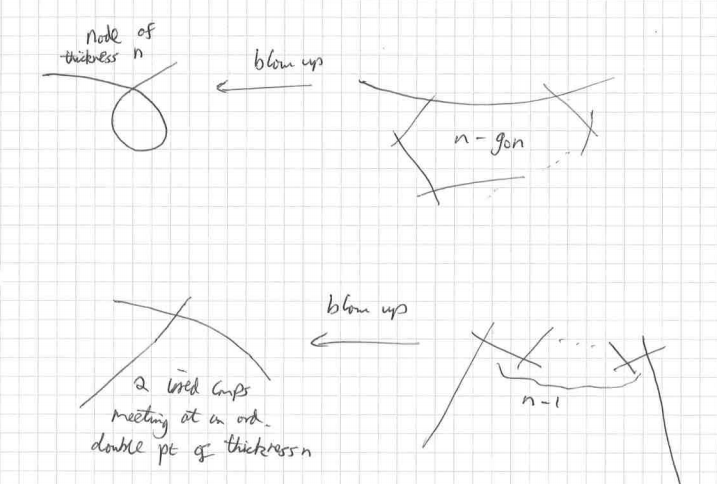 node of
thickness n
blow up
n-gon
blow up
2 irred comps
meeting at an ord.
double pt of thickness n
n-1